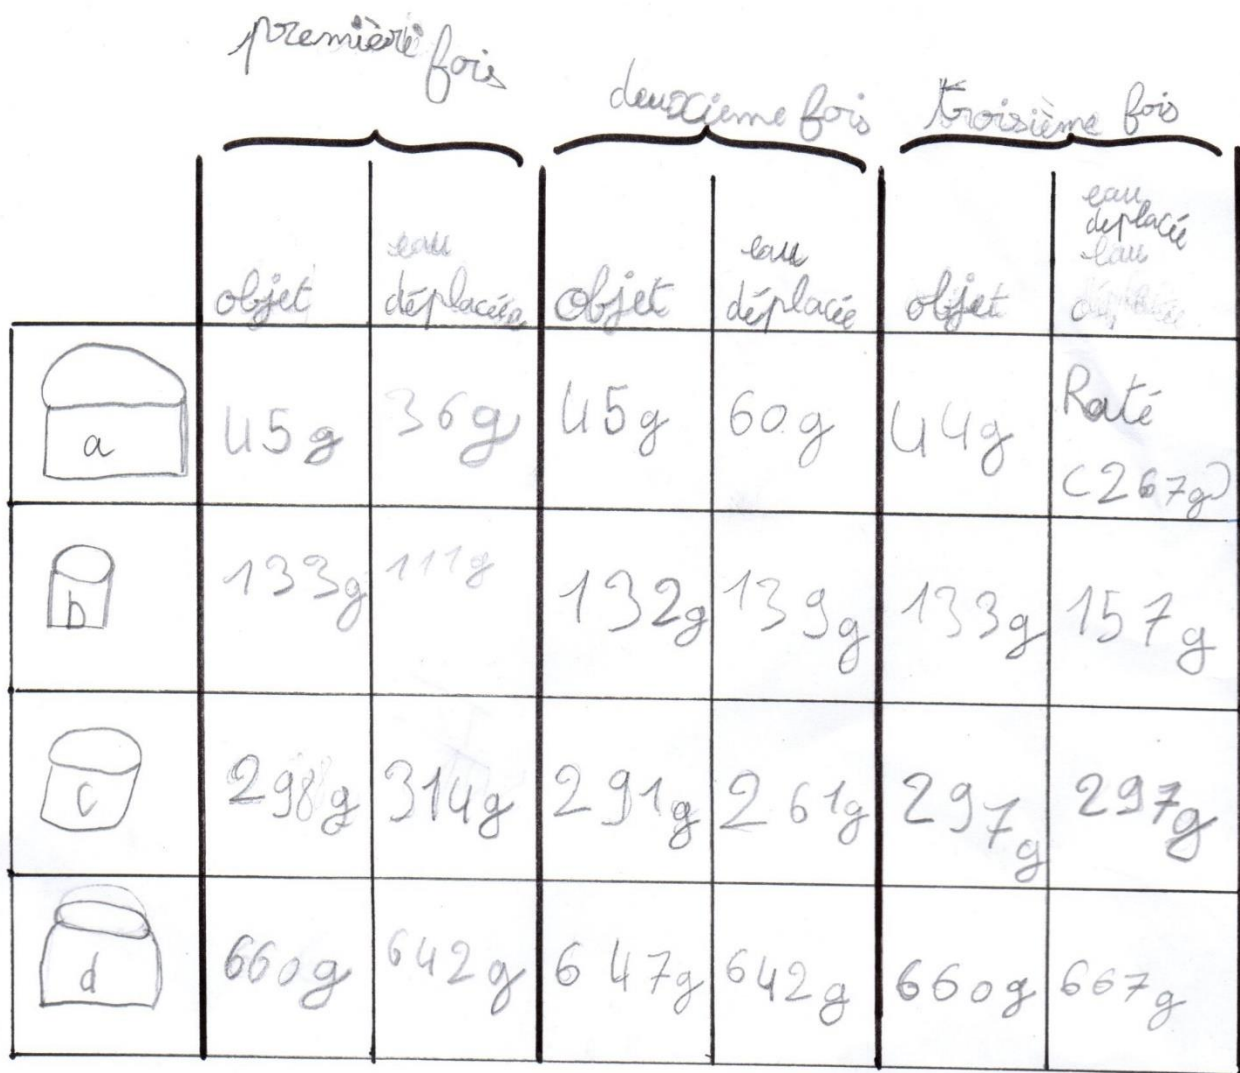 première fois
deuxcieme fois
troisième fois
objet
eau
déplacée
objet
eau
déplacée
objet
eau
déplacée
eau
a
45g
36g
45g
60g
44g
Raté
(267g)
b
133g
111g
132g
139g
133g
157g
c
298g
314g
291g
261g
297g
297g
d
660g
642g
647g
642g
660g
667g